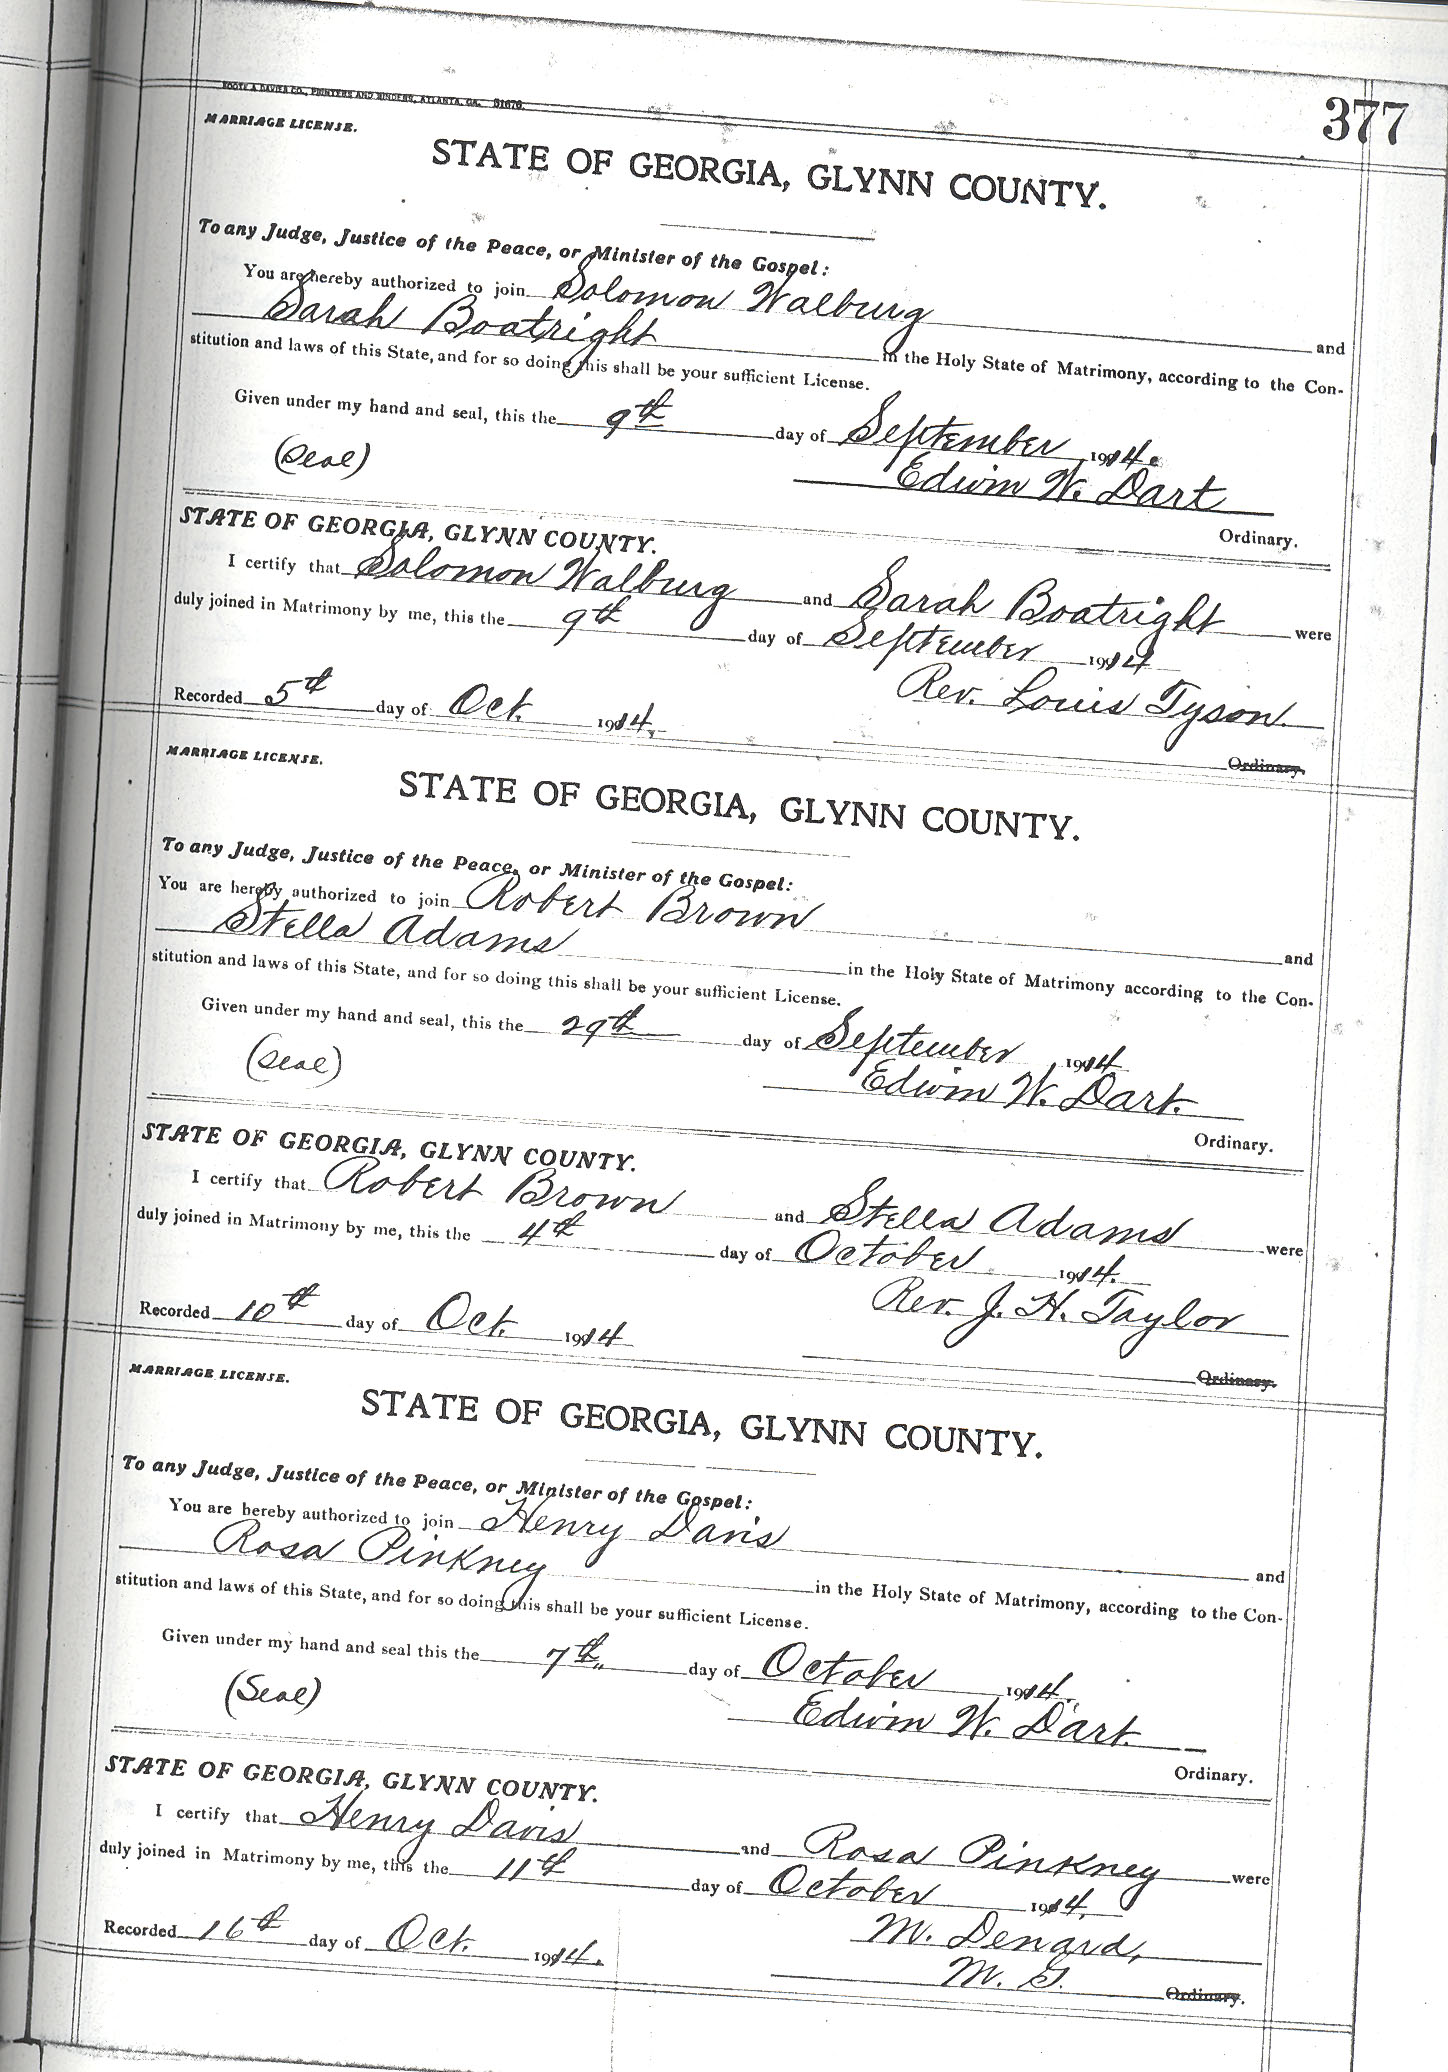 FOOTE & DAVIES CO., PRINTERS AND BINDERS, ATLANTA, GA. 51676.
377
MARRIAGE LICENSE.
STATE OF GEORGIA, GLYNN COUNTY.
To any Judge, Justice of the Peace, or Minister of the Gospel:
You are hereby authorized to join Solomon Walburg and
Sarah Boatright in the Holy State of Matrimony, according to the Con-
stitution and laws of this State, and for so doing this shall be your sufficient License.
Given under my hand and seal, this the 9th day of September 1914.
(Seal) Edwin W. Dart
Ordinary.
STATE OF GEORGIA, GLYNN COUNTY.
I certify that Solomon Walburg and Sarah Boatright were
duly joined in Matrimony by me, this the 9th day of September 1914
Rev. Louis Tyson.
Recorded 5th day of Oct. 1914.
Ordinary.
MARRIAGE LICENSE.
STATE OF GEORGIA, GLYNN COUNTY.
To any Judge, Justice of the Peace, or Minister of the Gospel:
You are hereby authorized to join Robert Brown and
Stella Adams in the Holy State of Matrimony according to the Con-
stitution and laws of this State, and for so doing this shall be your sufficient License.
Given under my hand and seal, this the 29th day of September 1914
(Seal) Edwin W. Dart.
Ordinary.
STATE OF GEORGIA, GLYNN COUNTY.
I certify that Robert Brown and Stella Adams were
duly joined in Matrimony by me, this the 4th day of October 1914.
Rev. J. H. Taylor
Recorded 10th day of Oct. 1914
Ordinary.
MARRIAGE LICENSE.
STATE OF GEORGIA, GLYNN COUNTY.
To any Judge, Justice of the Peace, or Minister of the Gospel:
You are hereby authorized to join Henry Davis and
Rosa Pinkney in the Holy State of Matrimony, according to the Con-
stitution and laws of this State, and for so doing this shall be your sufficient License.
Given under my hand and seal this the 7th day of October 1914.
(Seal) Edwin W. Dart.
Ordinary.
STATE OF GEORGIA, GLYNN COUNTY.
I certify that Henry Davis and Rosa Pinkney were
duly joined in Matrimony by me, this the 11th day of October 1914.
M. Denard,
Recorded 16th day of Oct. 1914.
M. G.
Ordinary.